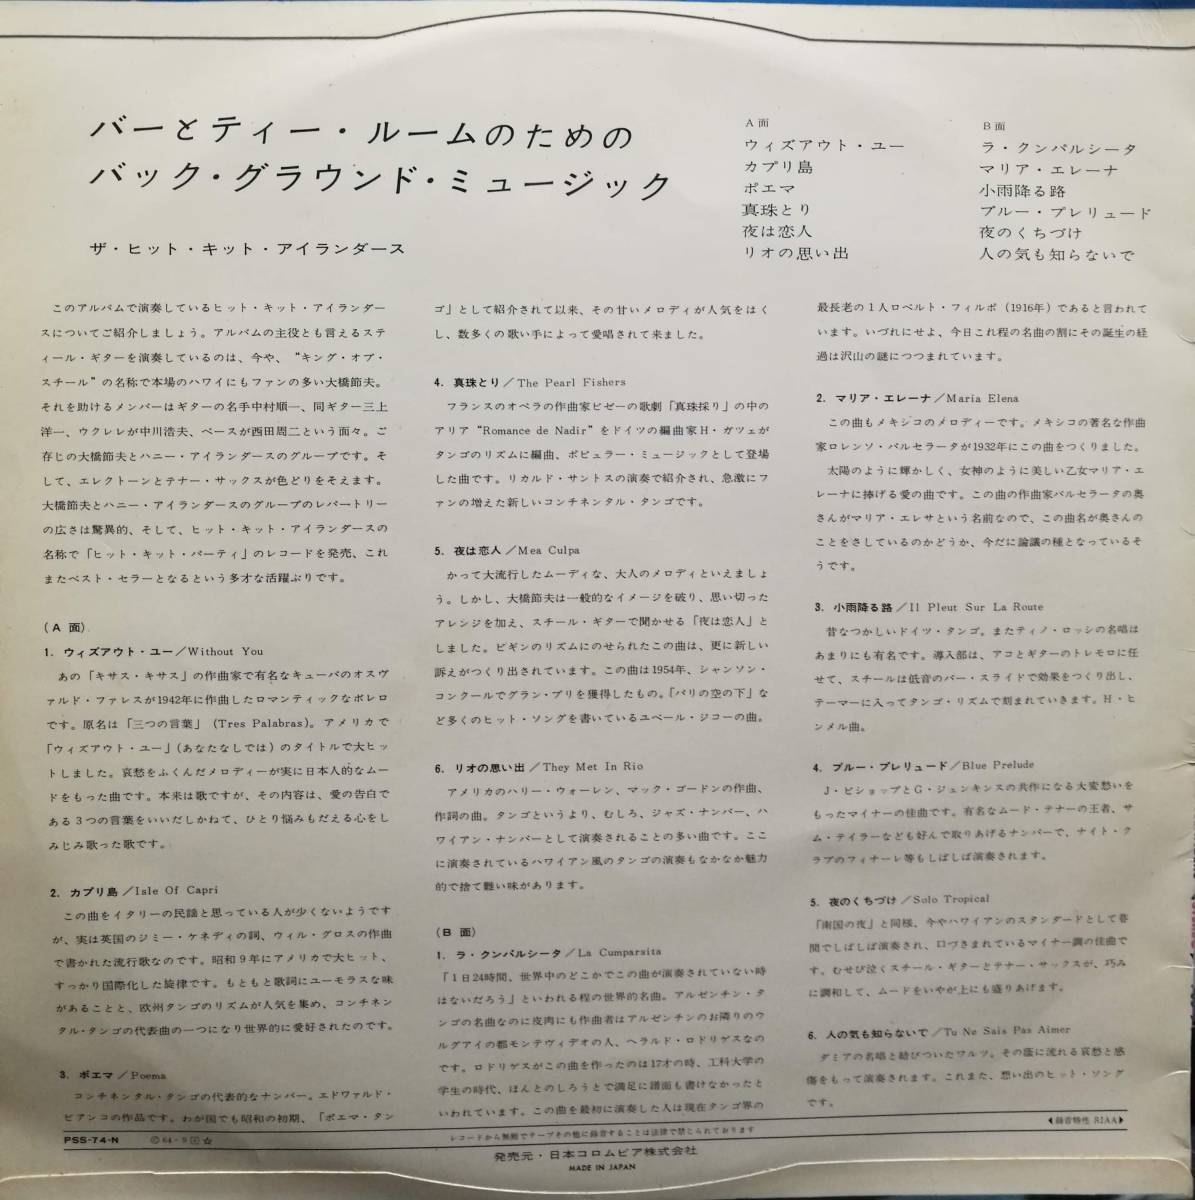 バーとティー・ルームのための
バック・グラウンド・ミュージック
ザ・ヒット・キット・アイランダース
A面
ウィズアウト・ユー
カプリ島
ポエマ
真珠とり
夜は恋人
リオの思い出
B面
ラ・クンパルシータ
マリア・エレーナ
小雨降る路
ブルー・プレリュード
夜のくちづけ
人の気も知らないで
このアルバムで演奏しているヒット・キット・アイランダー
スについてご紹介しましょう。アルバムの主役とも言えるステ
ィール・ギターを演奏しているのは、今や、“キング・オブ・
スチール”の名称で本場のハワイにもファンの多い大橋節夫。
それを助けるメンバーはギターの名手中村順一、同ギター三上
洋一、ウクレレが中川浩夫、ベースが西田周二という面々。ご
存じの大橋節夫とハニー・アイランダースのグループです。そ
して、エレクトーンとテナー・サックスが色どりをそえます。
大橋節夫とハニー・アイランダースのグループのレパートリー
の広さは驚異的、そして、ヒット・キット・アイランダースの
名称で「ヒット・キット・パーティ」のレコードを発売、これ
またベスト・セラーとなるという多才な活躍ぶりです。
(A 面)
1. ウィズアウト・ユー／Without You
あの「キサス・キサス」の作曲家で有名なキューバのオスヴ
ァルド・ファレスが1942年に作曲したロマンティックなボレロ
です。原名は「三つの言葉」(Tres Palabras)。アメリカで
「ウィズアウト・ユー」(あなたなしでは)のタイトルで大ヒッ
トしました。哀愁をふくんだメロディーが実に日本人的なムー
ドをもった曲です。本来は歌ですが、その内容は、愛の告白で
ある3つの言葉をいいだしかねて、ひとり悩みもだえる心をし
みじみ歌った歌です。
2. カプリ島／Isle Of Capri
この曲をイタリーの民謡と思っている人が少くないようです
が、実は英国のジミー・ケネディの詞、ウィル・グロスの作曲
で書かれた流行歌なのです。昭和9年にアメリカで大ヒット、
すっかり国際化した旋律です。もともと歌詞にユーモラスな味
があることと、欧州タンゴのリズムが人気を集め、コンチネン
タル・タンゴの代表曲の一つになり世界的に愛好されたのです。
3. ポエマ／Poema
コンチネンタル・タンゴの代表的なナンバー。エドワァルド・
ビアンコの作品です。わが国でも昭和の初期、「ポエマ・タン
ゴ」として紹介されて以来、その甘いメロディが人気をはく
し、数多くの歌い手によって愛唱されて来ました。
4. 真珠とり／The Pearl Fishers
フランスのオペラの作曲家ビゼーの歌劇「真珠採り」の中の
アリア“Romance de Nadir”をドイツの編曲家H・ガツェが
タンゴのリズムに編曲、ポピュラー・ミュージックとして登場
した曲です。リカルド・サントスの演奏で紹介され、急激にフ
ァンの増えた新しいコンチネンタル・タンゴです。
5. 夜は恋人／Mea Culpa
かって大流行したムーディな、大人のメロディといえましょ
う。しかし、大橋節夫は一般的なイメージを破り、思い切った
アレンジを加え、スチール・ギターで聞かせる「夜は恋人」と
しました。ビギンのリズムにのせられたこの曲は、更に新しい
訴えがつくり出されています。この曲は1954年、シャンソン・
コンクールでグラン・プリを獲得したもの。「パリの空の下」な
ど多くのヒット・ソングを書いているユベール・ジローの曲。
6. リオの思い出／They Met In Rio
アメリカのハリー・ウォーレン、マック・ゴードンの作曲、
作詞の曲。タンゴというより、むしろ、ジャズ・ナンバー、ハ
ワイアン・ナンバーとして演奏されることの多い曲です。ここ
に演奏されているハワイアン風のタンゴの演奏もなかなか魅力
的で捨て難い味があります。
(B 面)
1. ラ・クンパルシータ／La Cumparsita
「1日24時間、世界中のどこかでこの曲が演奏されていない時
はないだろう」といわれる程の世界的名曲。アルゼンチン・タ
ンゴの名曲なのに皮肉にも作曲者はアルゼンチンのお隣りのウ
ルグアイの都モンテヴィデオの人、ヘラルド・ロドリゲスなの
です。ロドリゲスがこの曲を作ったのは17才の時、工科大学の
学生の時代、ほんとのしろうとで満足に譜面も書けなかったと
いわれています。この曲を最初に演奏した人は現在タンゴ界の
最長老の1人ロベルト・フィルポ(1916年)であると言われて
います。いづれにせよ、今日これ程の名曲の割にその誕生の経
過は沢山の謎につつまれています。
2. マリア・エレーナ／María Elena
この曲もメキシコのメロディーです。メキシコの著名な作曲
家ロレンソ・バルセラータが1932年にこの曲をつくりました。
太陽のように輝かしく、女神のように美しい乙女マリア・エ
レーナに捧げる愛の曲です。この曲の作曲家バルセラータの奥
さんがマリア・エレサという名前なので、この曲名が奥さんの
ことをさしているのかどうか、今だに論議の種となっているそ
うです。
3. 小雨降る路／Il Pleut Sur La Route
昔なつかしいドイツ・タンゴ。またティノ・ロッシの名唱は
あまりにも有名です。導入部は、アコとギターのトレモロに任
せて、スチールは低音のバー・スライドで効果をつくり出し、
テーマーに入ってタンゴ・リズムで刻まれていきます。H・ヒ
ンメル曲。
4. ブルー・プレリュード／Blue Prelude
J・ビショップとG・ジェンキンスの共作になる大変愁いを
もったマイナーの佳曲です。有名なムード・テナーの王者、サ
ム・テイラーなども好んで取りあげるナンバーで、ナイト・ク
ラブのフィナーレ等もしばしば演奏されます。
5. 夜のくちづけ／Solo Tropical
「南国の夜」と同様、今やハワイアンのスタンダードとして巷
間でしばしば演奏され、口づさまれているマイナー調の佳曲で
す。むせび泣くスチール・ギターとテナー・サックスが、巧み
に調和して、ムードをいやが上にも盛りあげます。
6. 人の気も知らないで／Tu Ne Sais Pas Aimer
ダミアの名唱と結びついたワルツ。その蔭に流れる哀愁と感
傷をもって演奏されます。これまた、想い出のヒット・ソング
です。
PSS-74-N
Ⓒ64・9
☆
レコードから無断でテープその他に録音することは法律で禁じられております
録音特性 RIAA
発売元・日本コロムビア株式会社
MADE IN JAPAN